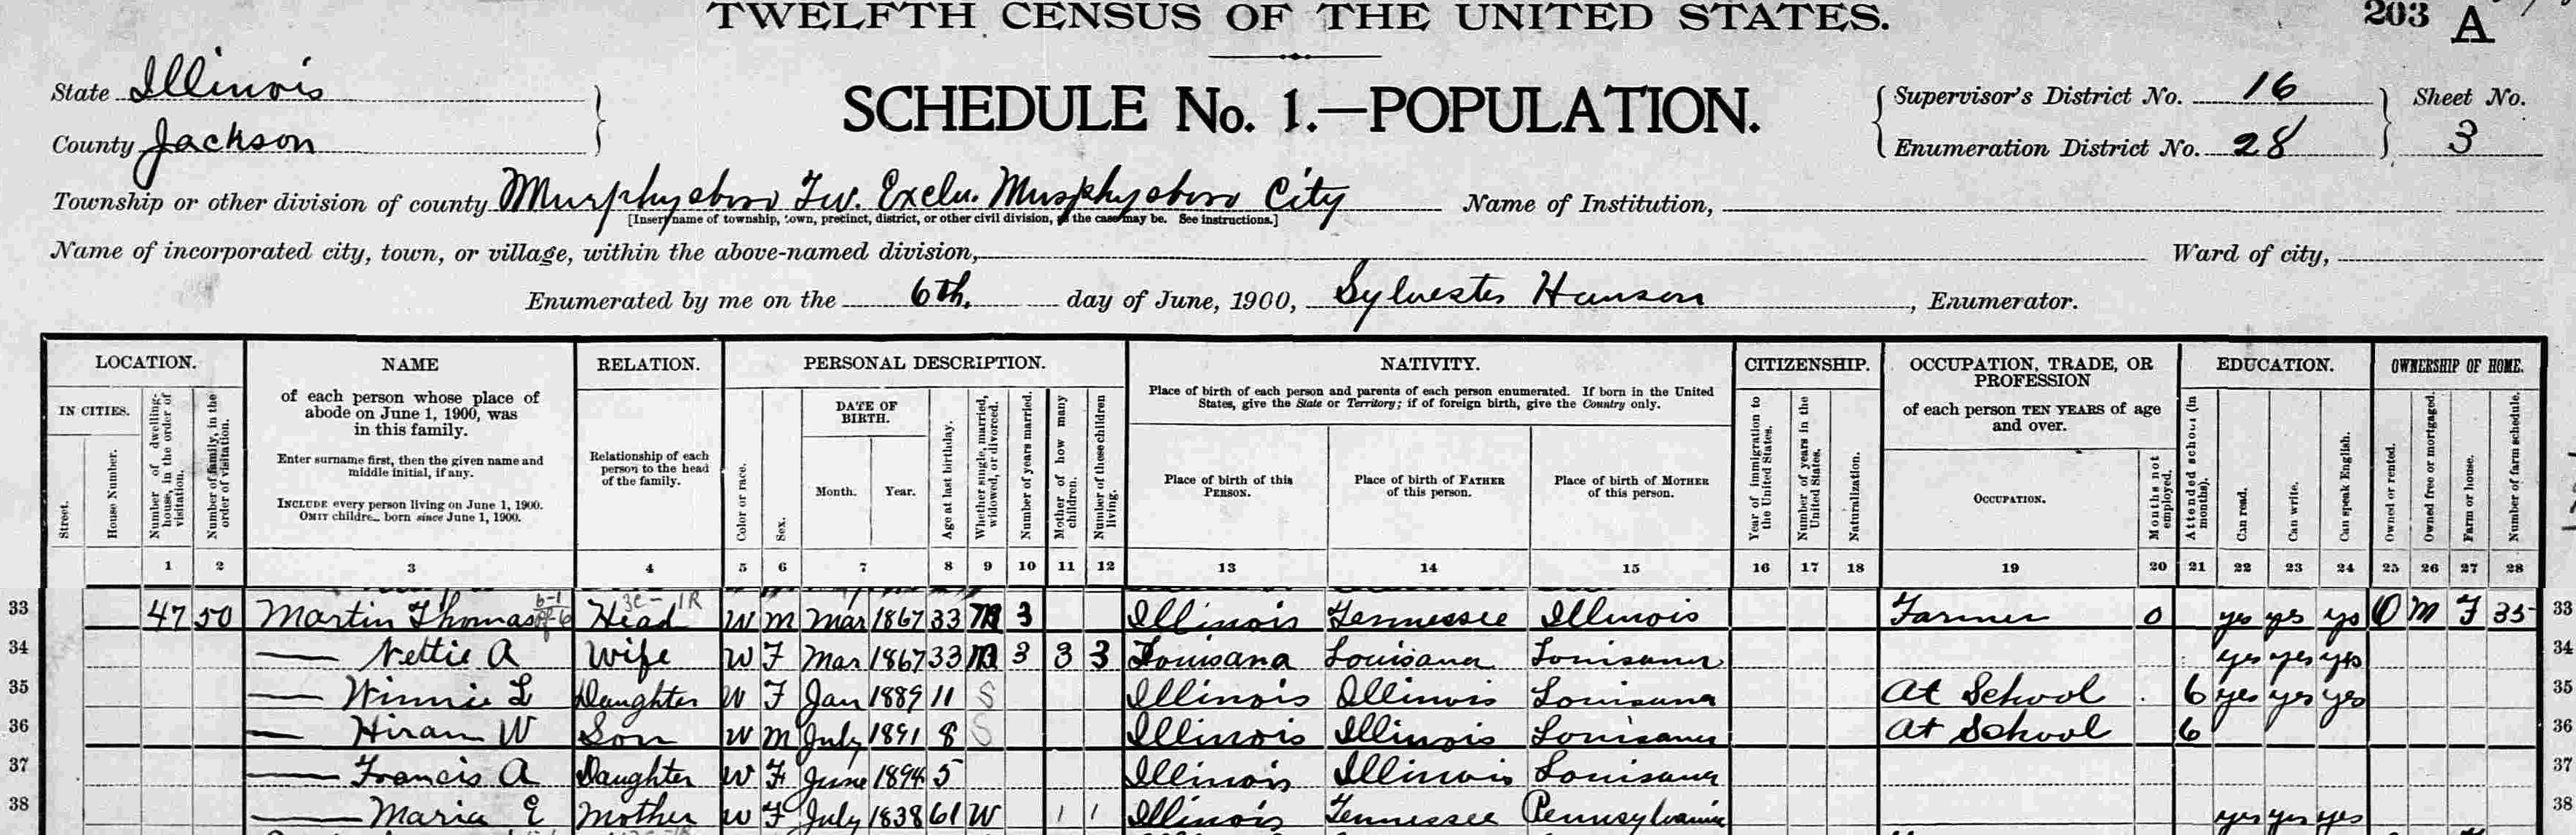 TWELFTH CENSUS OF THE UNITED STATES.
203 A
State Illinois
County Jackson
SCHEDULE No. 1.—POPULATION.
Supervisor's District No. 16
Enumeration District No. 28
Sheet No.
3
Township or other division of county Murphysboro Tw. Exclu. Murphysboro City
[Insert name of township, town, precinct, district, or other civil division, as the case may be. See instructions.]
Name of Institution,
Name of incorporated city, town, or village, within the above-named division,
Ward of city,
Enumerated by me on the 6th. day of June, 1900, Sylvester Hanson, Enumerator.
LOCATION.
IN CITIES.
Street.
House Number.
Number of dwelling-house, in the order of visitation.
Number of family, in the order of visitation.
NAME
of each person whose place of
abode on June 1, 1900, was
in this family.
Enter surname first, then the given name and
middle initial, if any.
INCLUDE every person living on June 1, 1900.
OMIT children born since June 1, 1900.
RELATION.
Relationship of each
person to the head
of the family.
PERSONAL DESCRIPTION.
Color or race.
Sex.
DATE OF
BIRTH.
Month. Year.
Age at last birthday.
Whether single, married, widowed, or divorced.
Number of years married.
Mother of how many children.
Number of these children living.
NATIVITY.
Place of birth of each person and parents of each person enumerated. If born in the United
States, give the State or Territory; if of foreign birth, give the Country only.
Place of birth of this
PERSON.
Place of birth of FATHER
of this person.
Place of birth of MOTHER
of this person.
CITIZENSHIP.
Year of immigration to the United States.
Number of years in the United States.
Naturalization.
OCCUPATION, TRADE, OR
PROFESSION
of each person TEN YEARS of age
and over.
OCCUPATION.
Months not employed.
EDUCATION.
Attended school (in months).
Can read.
Can write.
Can speak English.
OWNERSHIP OF HOME.
Owned or rented.
Owned free or mortgaged.
Farm or house.
Number of farm schedule.
1 2 3 4 5 6 7 8 9 10 11 12 13 14 15 16 17 18 19 20 21 22 23 24 25 26 27 28
33 47 50 Martin Thomas Head W M Mar 1867 33 M 3 Illinois Tennessee Illinois Farmer 0 yes yes yes O M F 35 33
34 — Nettie A Wife W F Mar 1867 33 M 3 3 3 Louisana Louisana Louisana yes yes yes 34
35 — Winnie L Daughter W F Jan 1889 11 S Illinois Illinois Louisana At School 6 yes yes yes 35
36 — Hiram W Son W M July 1891 8 S Illinois Illinois Louisana At School 6 36
37 — Francis A Daughter W F June 1894 5 Illinois Illinois Louisana 37
38 — Maria E Mother W F July 1838 61 W 1 1 Illinois Tennessee Pennsylvania yes yes yes 38